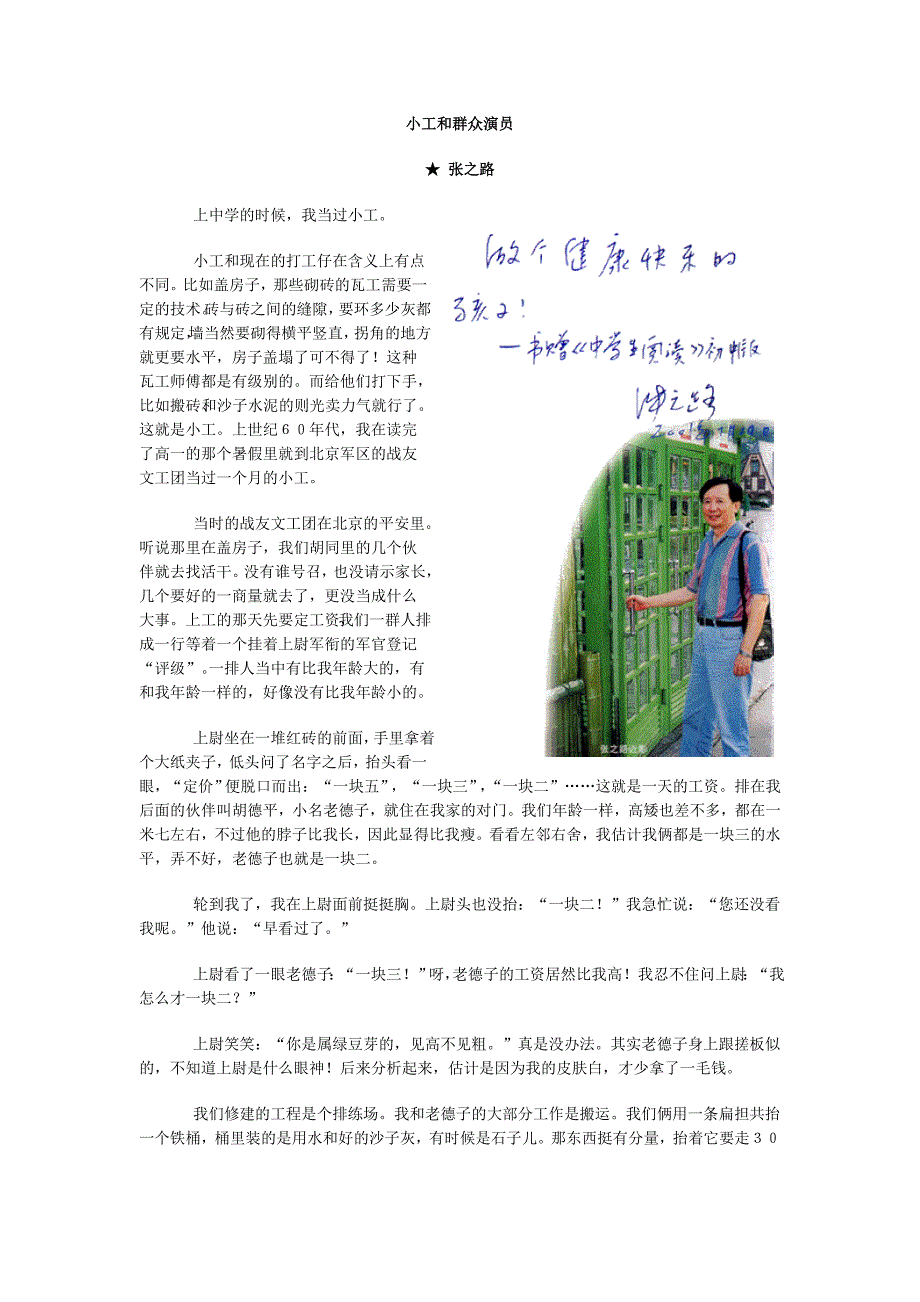 小工和群众演员
★ 张之路
上中学的时候，我当过小工。
小工和现在的打工仔在含义上有点
不同。比如盖房子，那些砌砖的瓦工需要一
定的技术，砖与砖之间的缝隙，要环多少灰都
有规定，墙当然要砌得横平竖直，拐角的地方
就更要水平，房子盖塌了可不得了！这种
瓦工师傅都是有级别的。而给他们打下手，
比如搬砖、和沙子水泥的则光卖力气就行了。
这就是小工。上世纪６０年代，我在读完
了高一的那个暑假里就到北京军区的战友
文工团当过一个月的小工。
当时的战友文工团在北京的平安里。
听说那里在盖房子，我们胡同里的几个伙
伴就去找活干。没有谁号召，也没请示家长，
几个要好的一商量就去了，更没当成什么
大事。上工的那天先要定工资，我们一群人排
成一行等着一个挂着上尉军衔的军官登记
“评级”。一排人当中有比我年龄大的，有
和我年龄一样的，好像没有比我年龄小的。
上尉坐在一堆红砖的前面，手里拿着
个大纸夹子，低头问了名字之后，抬头看一
眼，“定价”便脱口而出：“一块五”，“一块三”，“一块二”……这就是一天的工资。排在我
后面的伙伴叫胡德平，小名老德子，就住在我家的对门。我们年龄一样，高矮也差不多，都在一
米七左右，不过他的脖子比我长，因此显得比我瘦。看看左邻右舍，我估计我俩都是一块三的水
平，弄不好，老德子也就是一块二。
轮到我了，我在上尉面前挺挺胸。上尉头也没抬：“一块二！”我急忙说：“您还没看
我呢。”他说：“早看过了。”
上尉看了一眼老德子：“一块三！”呀，老德子的工资居然比我高！我忍不住问上尉：“我
怎么才一块二？”
上尉笑笑：“你是属绿豆芽的，见高不见粗。”真是没办法。其实老德子身上跟搓板似
的，不知道上尉是什么眼神！后来分析起来，估计是因为我的皮肤白，才少拿了一毛钱。
我们修建的工程是个排练场。我和老德子的大部分工作是搬运。我们俩用一条扁担共抬
一个铁桶，桶里装的是用水和好的沙子灰，有时候是石子儿。那东西挺有分量，抬着它要走３０
做个健康快乐的
孩子！
—书赠《中学生阅读》初中版
张之路
张之路近影